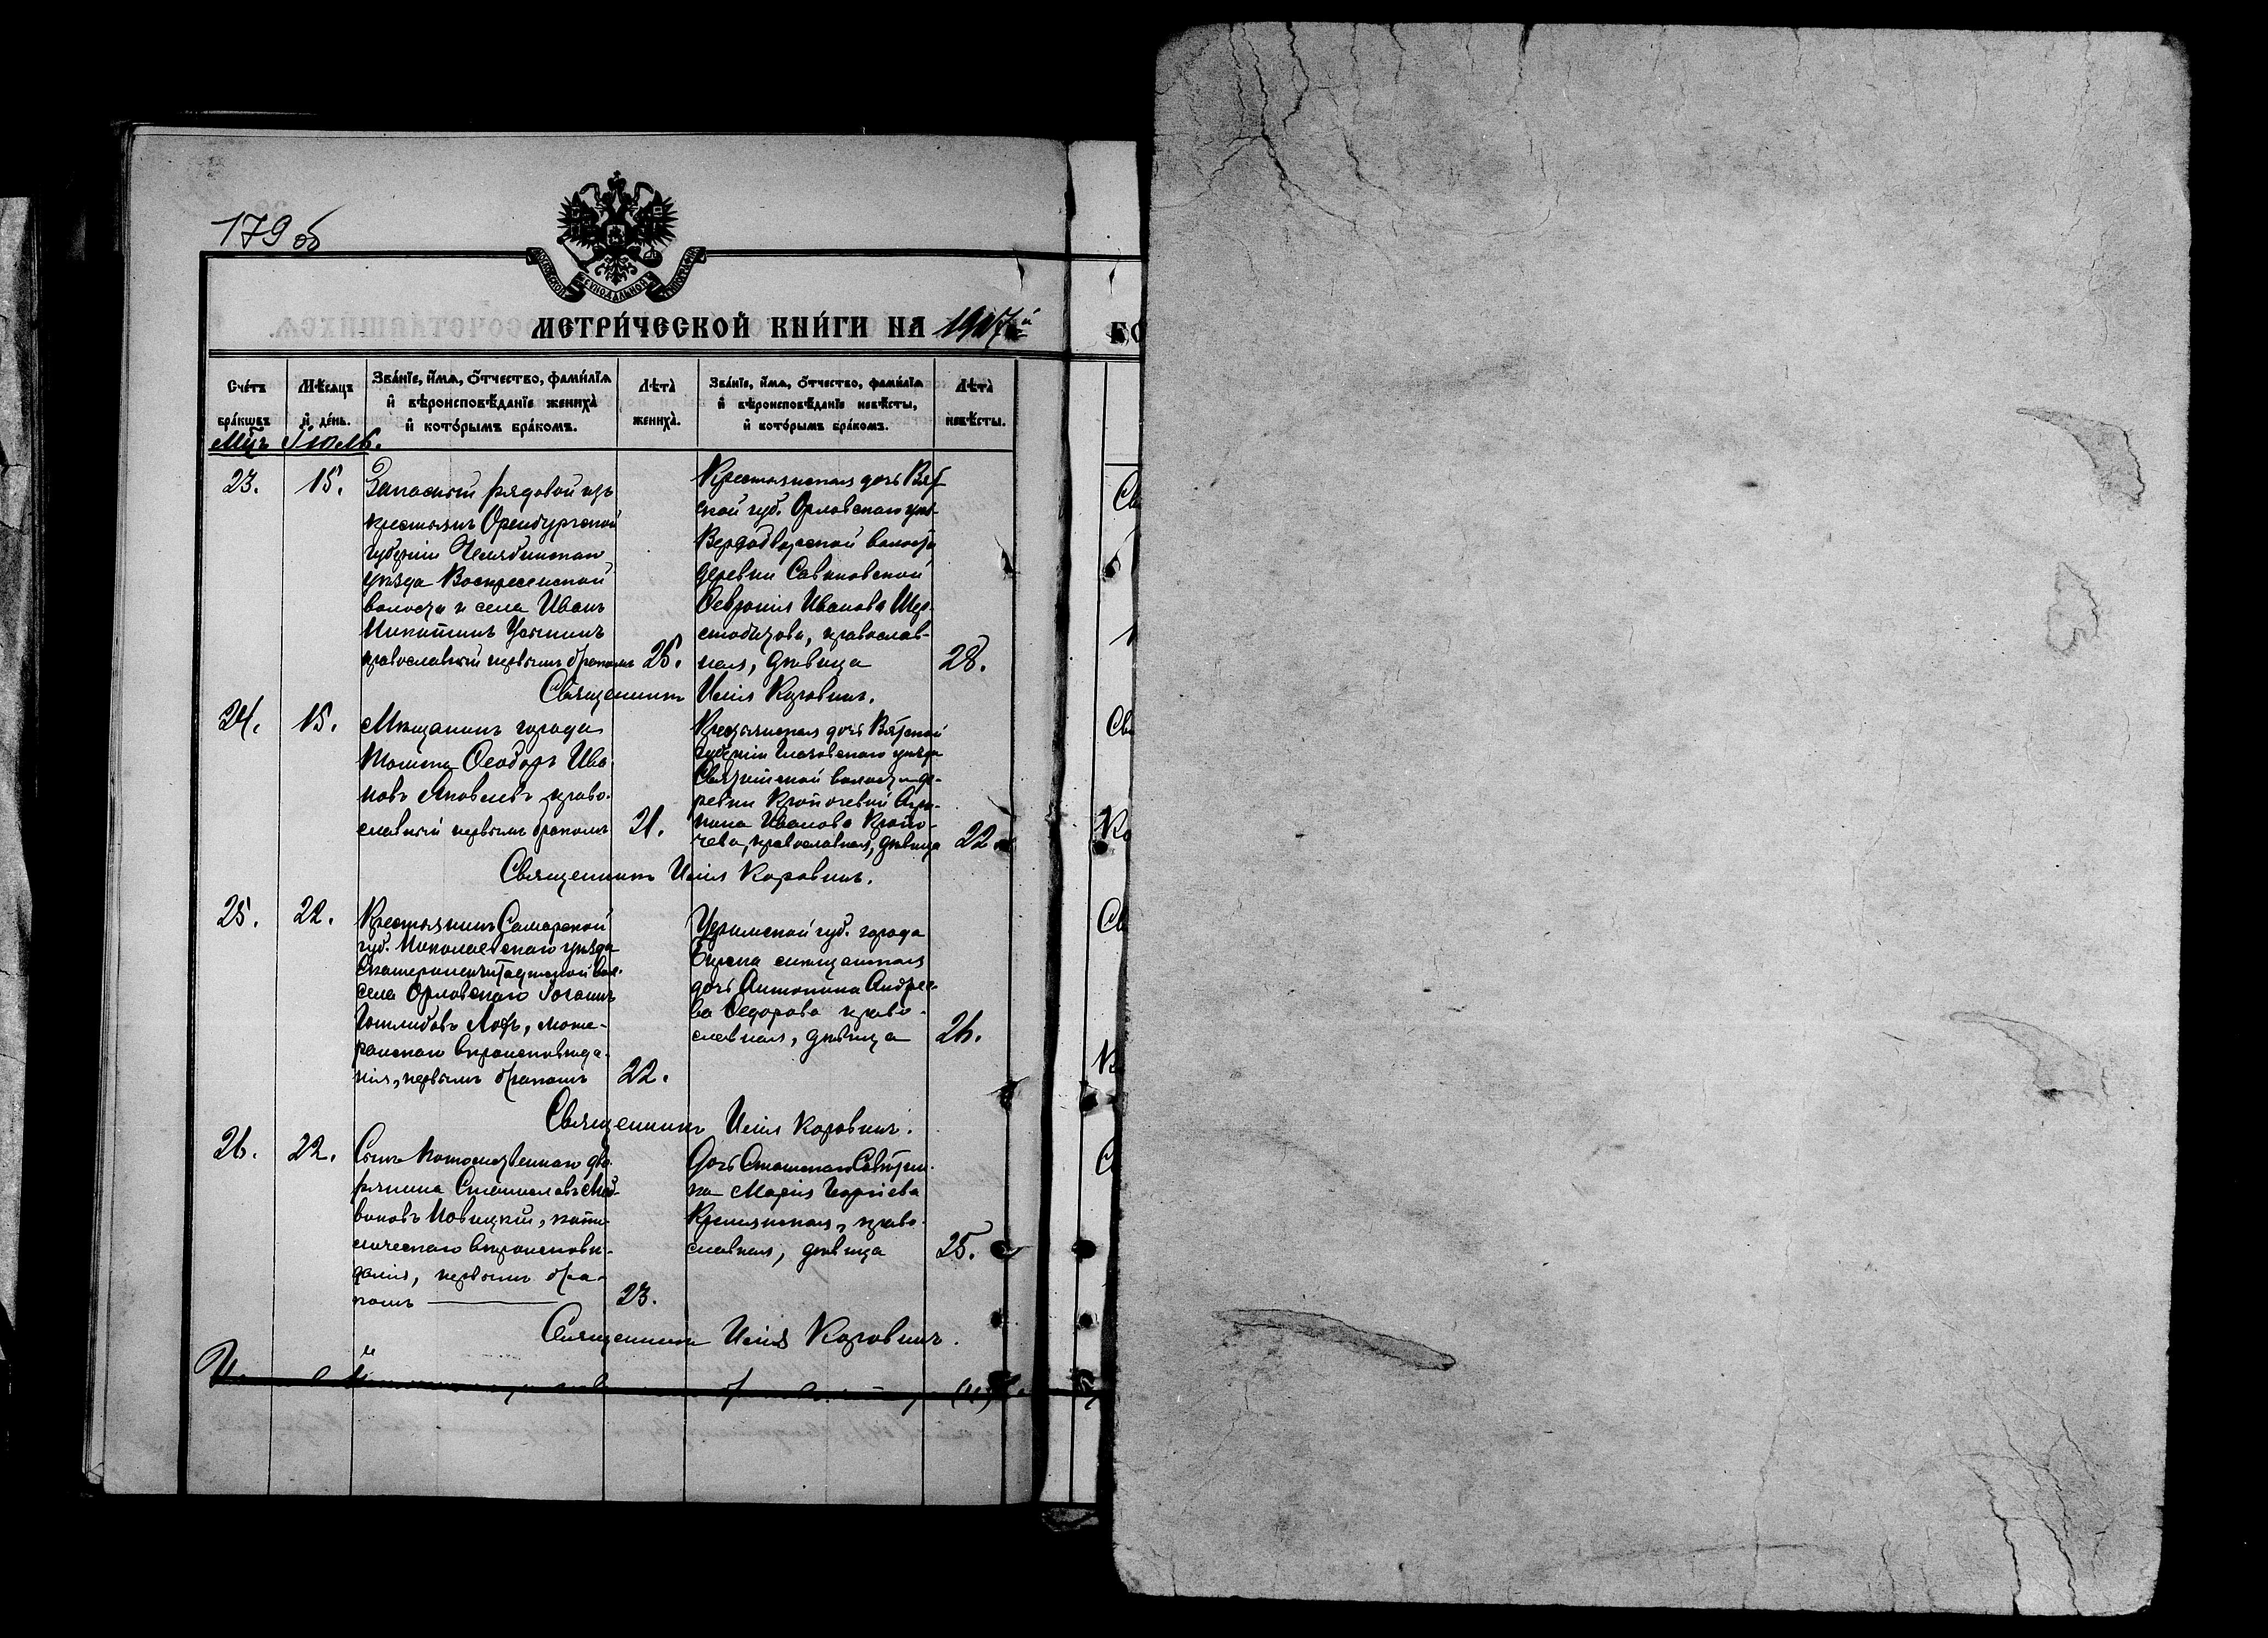 179 об
МОСКОВСКОЙ СѴНОДАЛЬНОЙ ТИПОГРАФІИ
МЕТРИ́ЧЕСКОЙ КНИ́ГИ НА 1907й
Сче́тъ бра́кѡвъ
Мѣ́сѧцъ и҆ де́нь.
Зва́нїе, и҆́мѧ, ѻ҆́тчество, фами́лїѧ и҆ вѣроисповѣ́данїе женихà и҆ кото́рымъ бра́комъ.
Лѣтà женихà.
Зва́нїе, и҆́мѧ, ѻ҆́тчество, фами́лїѧ и҆ вѣроисповѣ́данїе невѣ́сты, и҆ кото́рымъ бра́комъ.
Лѣтà невѣ́сты.
Мцъ Іюль.
23. 15.
Запасный рядовой изъ
крестьянъ Оренбургской
губерніи Челябинскаго
уѣзда Воскресенской
волости и села Иванъ
Никитинъ Устинъ
православный первымъ бракомъ 25.
Крестьянская дочь Вят
ской губ. Орловскаго уѣз-
волости
деревни Савиновской
Февронія Иванова Шер-
стобитова, православ-
ная, дѣвица 28.
Священникъ Илія Коровинъ.
24. 15.
Мѣщанинъ города
Томска Ѳеодоръ Ива
новъ Яковлевъ, право-
славный первымъ бракомъ 21.
Крестьянская дочь Вятской
губерніи Глазовскаго уѣзда
волости де-
ревни Агри-
пина Иванова
православная, дѣвица 22.
Священникъ Илія Коровинъ.
25. 22.
Крестьянинъ Самарской
губ. Николаевскаго уѣзда
вол.
села Орловскаго Іоганъ
Готлибовъ люте-
ранскаго вѣроисповѣда-
нія, первымъ бракомъ 22.
Уфимской губ. города
Бирска мѣщанская
дочь Антонина Андрее-
ва Федорова право-
славная, дѣвица 26.
Священникъ Илія Коровинъ.
26. 22.
Сынъ потомственнаго дво-
рянина Станиславъ
Новицкій, като-
лическаго вѣроисповѣ-
данія, первымъ бра-
комъ 23.
Дочь Статскаго Совѣтни-
ка Марія Георгіева
право-
славная, дѣвица 25.
Священникъ Илія Коровинъ.